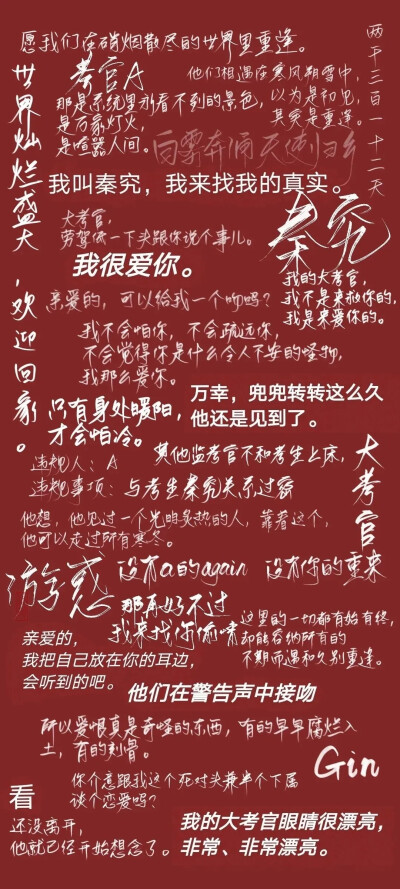 愿我们在硝烟散尽的世界里重逢。
两千三百一十二天
世界灿烂盛大，欢迎回家。
考官A
他们相遇在寒风朔雪中，
以为是初见，
其实是重逢。
那是系统里永看不到的景色，
是万家灯火，
是喧嚣人间。
白雾奔涌天使归乡
我叫秦究，我来找我的真实。
大考官，
劳驾低一下头跟你说个事儿。
我很爱你。
秦究
我的大考官，
我不是来救你的，
我是来爱你的。
亲爱的，可以给我一个吻吗？
我不会怕你，不会疏远你，
不会觉得你是什么令人不安的怪物，
我那么爱你。
万幸，兜兜转转这么久
他还是见到了。
只有身处暖阳，
才会怕冷。
大考官
其他监考官不和考生上床，
违规人：A
违规事项：与考生秦究关系过密
他想，他见过一个光明炙热的人，靠着这个，
他可以走过所有寒冬。
游惑
没有a的again 没有你的重来
那再好不过
我来找你偷啸
这里的一切都有始有终，
却能容纳所有的
不期而遇和久别重逢。
亲爱的，
我把自己放在你的耳边，
会听到的吧。
他们在警告声中接吻
所以爱恨真是奇怪的东西，有的早早腐烂入
土，有的刻骨。
Gin
你介意跟我这个死对头兼半个下属
谈个恋爱吗？
看
还没离开，
他就已经开始想念了。
我的大考官眼睛很漂亮，
非常、非常漂亮。